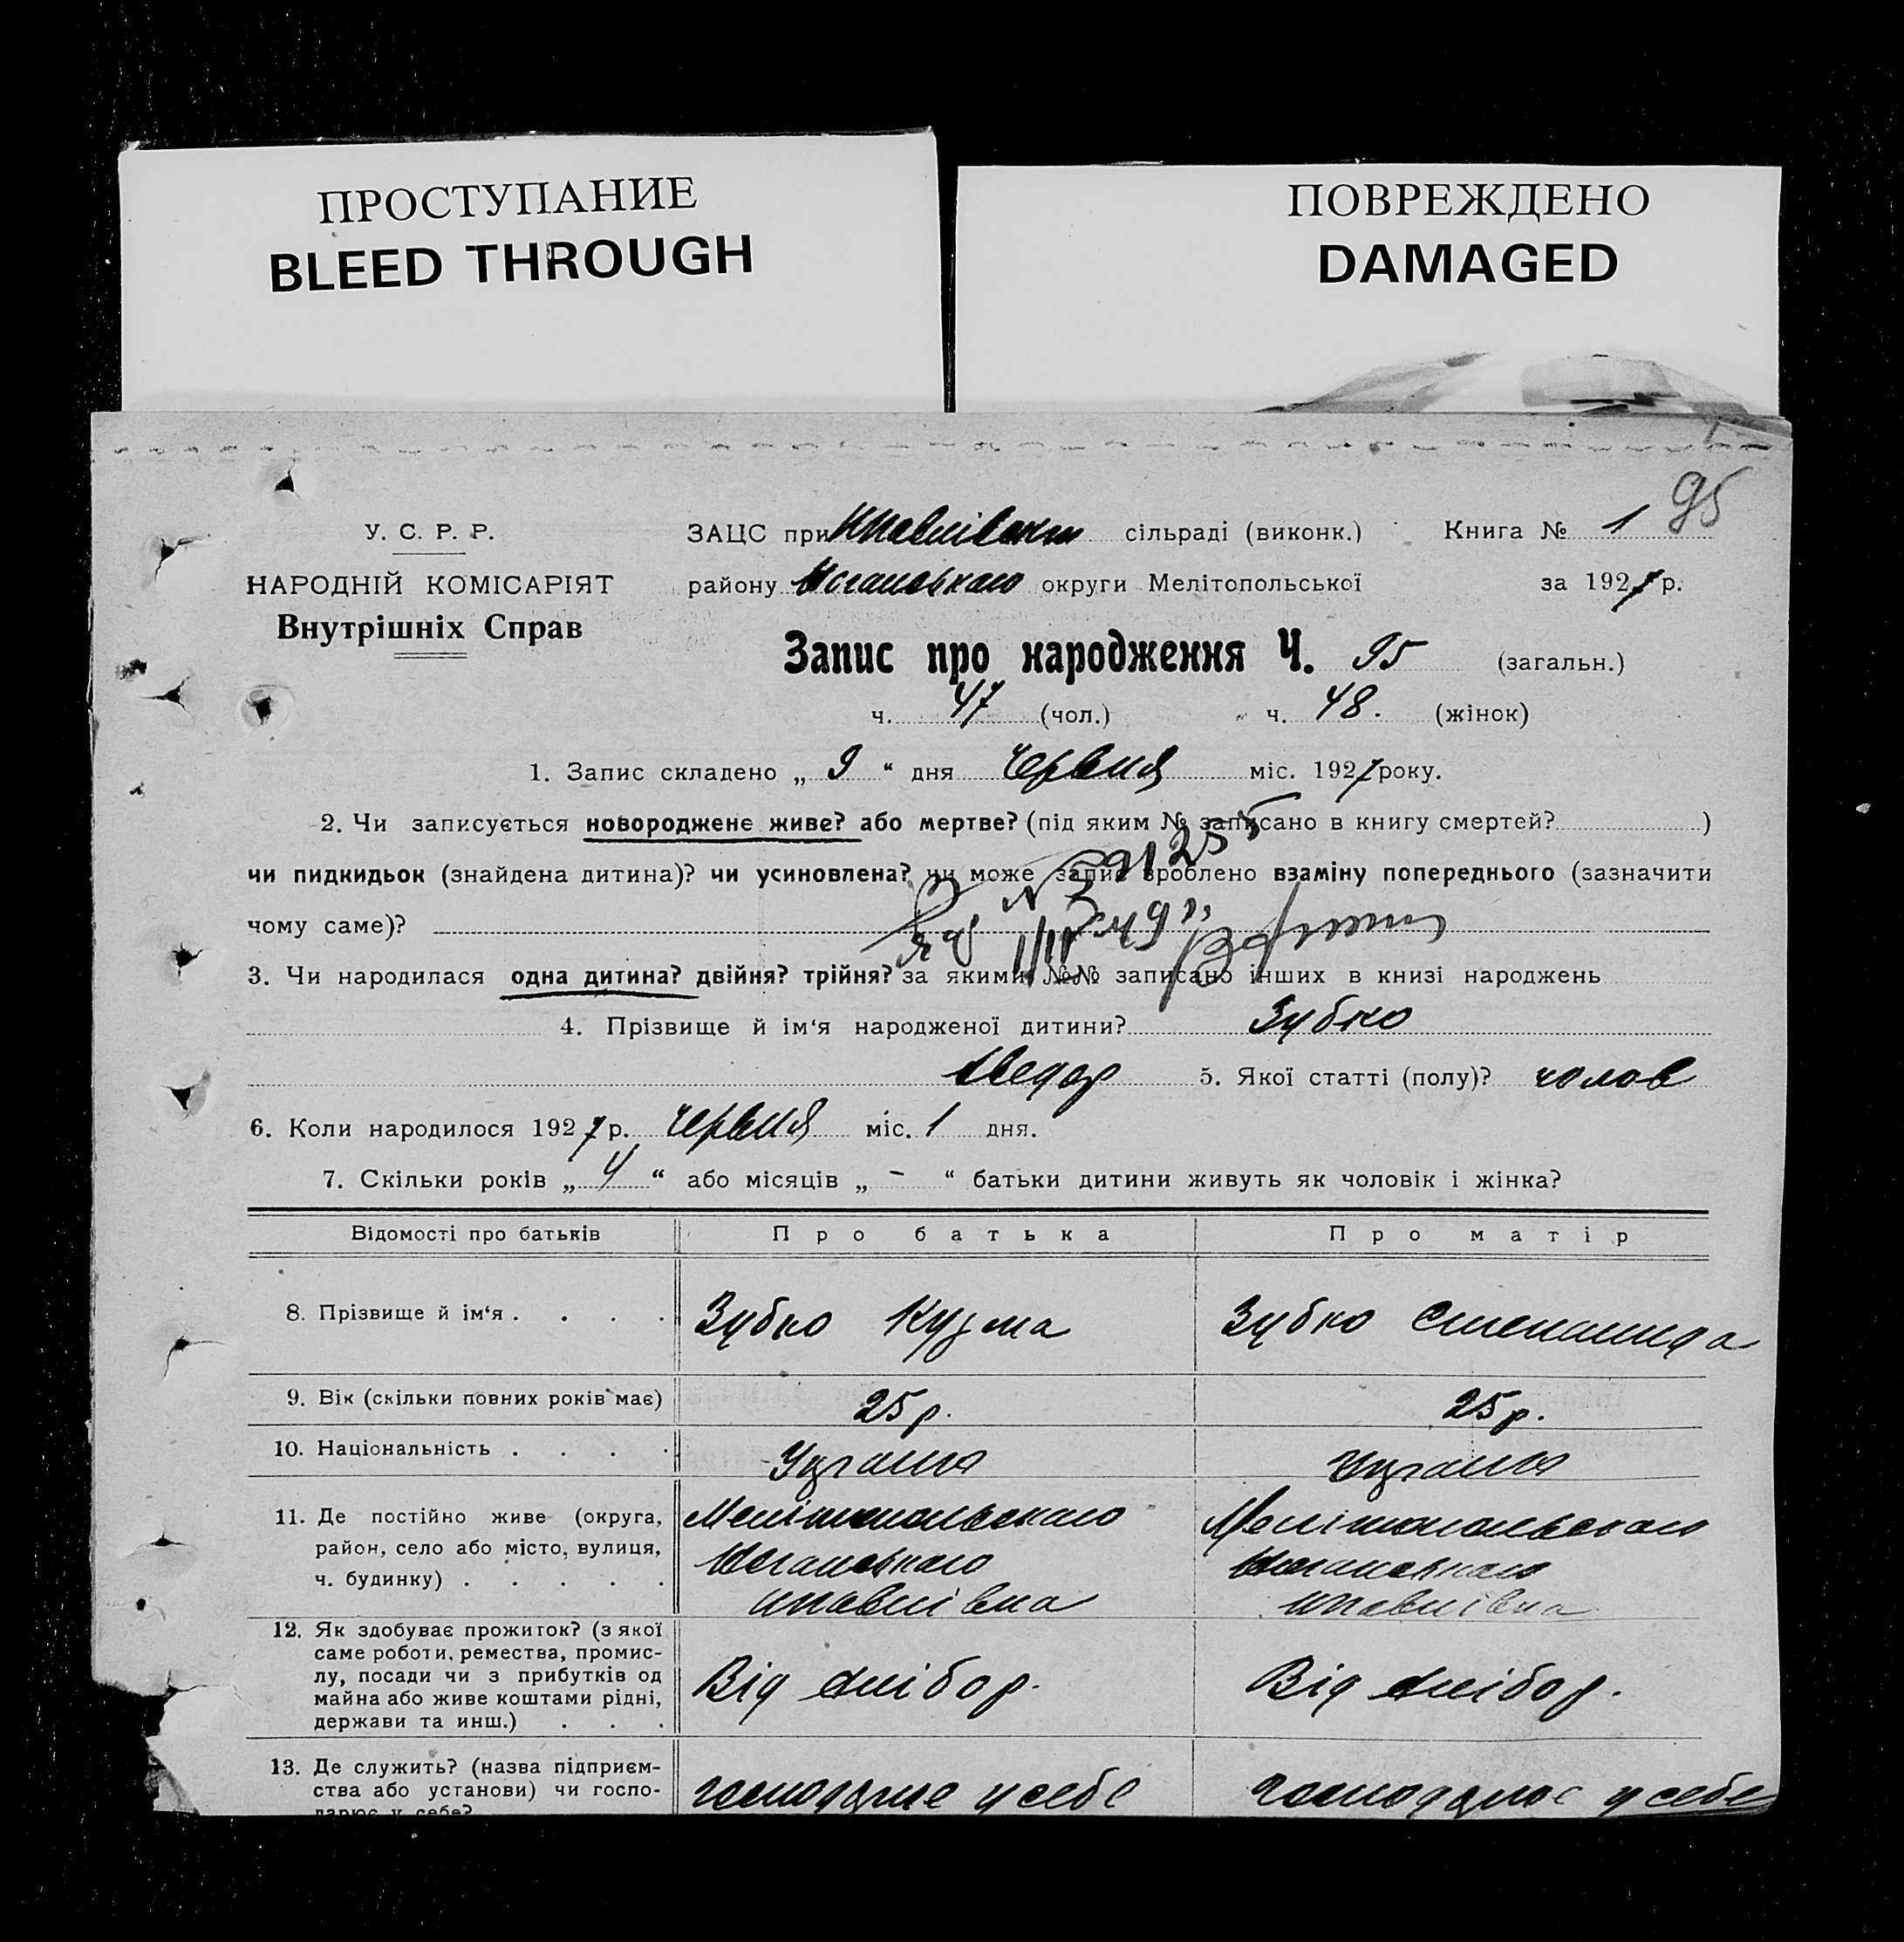 ПРОСТУПАНИЕ
BLEED THROUGH
ПОВРЕЖДЕНО
DAMAGED
95
У. С. Р. Р.
НАРОДНІЙ КОМІСАРІЯТ
Внутрішніх Справ
ЗАЦС при сільраді (виконк.) Книга № 1
району округи Мелітопольської за 1927 р.
Запис про народження Ч. 95 (загальн.)
ч. 47 (чол.) ч. 48. (жінок)
1. Запис складено „ 9 “ дня Червня міс. 1927 року.
2. Чи записується новороджене живе? або мертве? (під яким № записано в книгу смертей? )
чи пидкидьок (знайдена дитина)? чи усиновлена? чи може запис зроблено взаміну попереднього (зазначити
чому саме)?
3. Чи народилася одна дитина? двійня? трійня? за якими №№ записано інших в книзі народжень
4. Прізвище й ім‘я народженої дитини? Зубко
Хведор 5. Якої статті (полу)? чолов
6. Коли народилося 1927 р. Червня міс. 1 дня.
7. Скільки років „ 4 “ або місяців „ - “ батьки дитини живуть як чоловік і жінка?
Відомості про батьків Про батька Про матір
8. Прізвище й ім‘я . . . . Зубко Кузма Зубко Степанида
9. Вік (скільки повних років має) 25 р. 25 р.
10. Національність . . . .
11. Де постійно живе (округа,
район, село або місто, вулиця,
ч. будинку) . . . . .
Мелітопольського Мелітопольського
12. Як здобуває прожиток? (з якої
саме роботи, ремества, промис-
лу, посади чи з прибутків од
майна або живе коштами рідні,
держави та инш.) . . .
Від хлібор. Від хлібор.
13. Де служить? (назва підприєм-
ства або установи) чи госпо-
дарює у себе?
господарює у себе господарює у себе